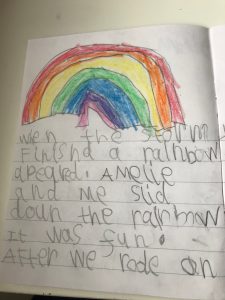 wen the storm
Finishd a rainbow
apeard. AMelie
and me slid
doun the rainbow
It was fun.
After we rode on